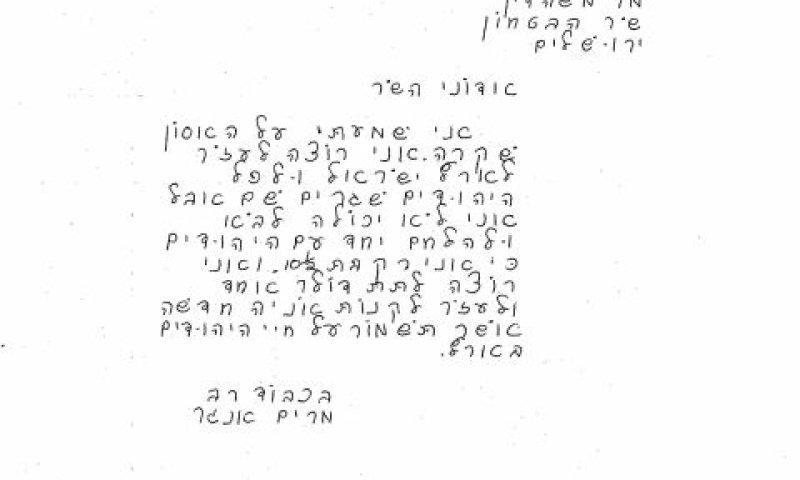 מר משה דיין
שר הבטחון
ירושלים
אדוני השר
אני שמעתי על האסון
שקרה. אני רוצה לעזר
לארץ ישראל ולכל
היהודים שגרים שם אבל
אני לא יכולה לבא
ולהלחם יחד עם היהודים
כי אני רק בת 10½. ואני
רוצה לתת דולר אחד
ולעזר לקנות אניה חדשה
אשר תשמור על חיי היהודים
בארץ.
בכבוד רב
מרים אונגר